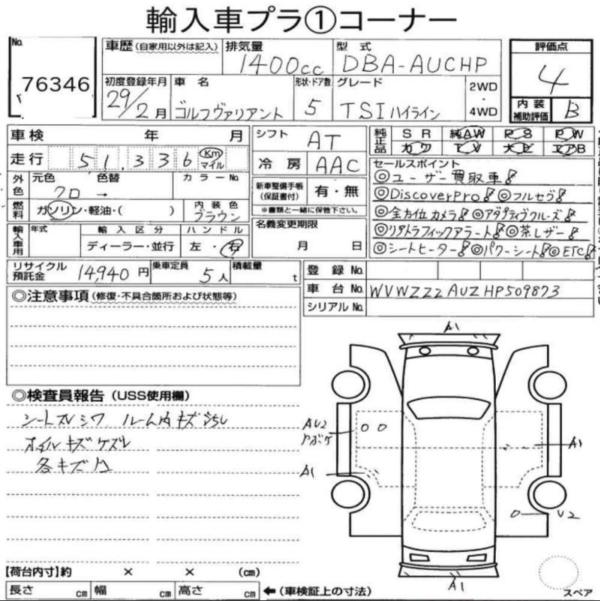 輸入車プラ①コーナー
No.
76346
車歴 (自家用以外は記入) 排気量 1400cc 型式 DBA-AUCHP
初度登録年月 29/2月 車名 ゴルフヴァリアント 形状・ドア数 5 グレード TSI ハイライン 2WD・4WD
評価点 4
内装補助評価 B
車検 年 月 シフト AT
純正品 SR 純AW PS PW
カワ TV ナビ エアB
走行 51,336 Km マイル 冷房 AAC
外色 元色 クロ 色替 → カラーNo.
燃料 ガソリン・軽油・( ) 内装色 ブラウン
新車整備手帳(保証書付) 有・無
※書類と一緒に保管下さい。
輸入車用 年式 輸入区分 ディーラー・並行 ハンドル 左・右
名義変更期限 月 日
セールスポイント
◎ユーザー買取車
◎DiscoverPro ◎フルセグ
◎全方位カメラ ◎アダプティブクルーズ
◎リヤトラフィックアラート ◎茶レザー
◎シートヒーター ◎パワーシート ◎ETC
リサイクル預託金 14940円 乗車定員 5人 積載量 t
登録No.
車台No. WVWZZZAUZHP509873
シリアルNo.
◎注意事項 (修復・不具合箇所および状態等)
◎検査員報告 (USS使用欄)
シートスレシワ ルーム内キズ
ホイルキズケズレ
各キズ
A1
AU2
A1
A1
U2
A1
スペア
【荷台内寸】約 × × (cm)
長さ cm 幅 cm 高さ cm ←(車検証上の寸法)